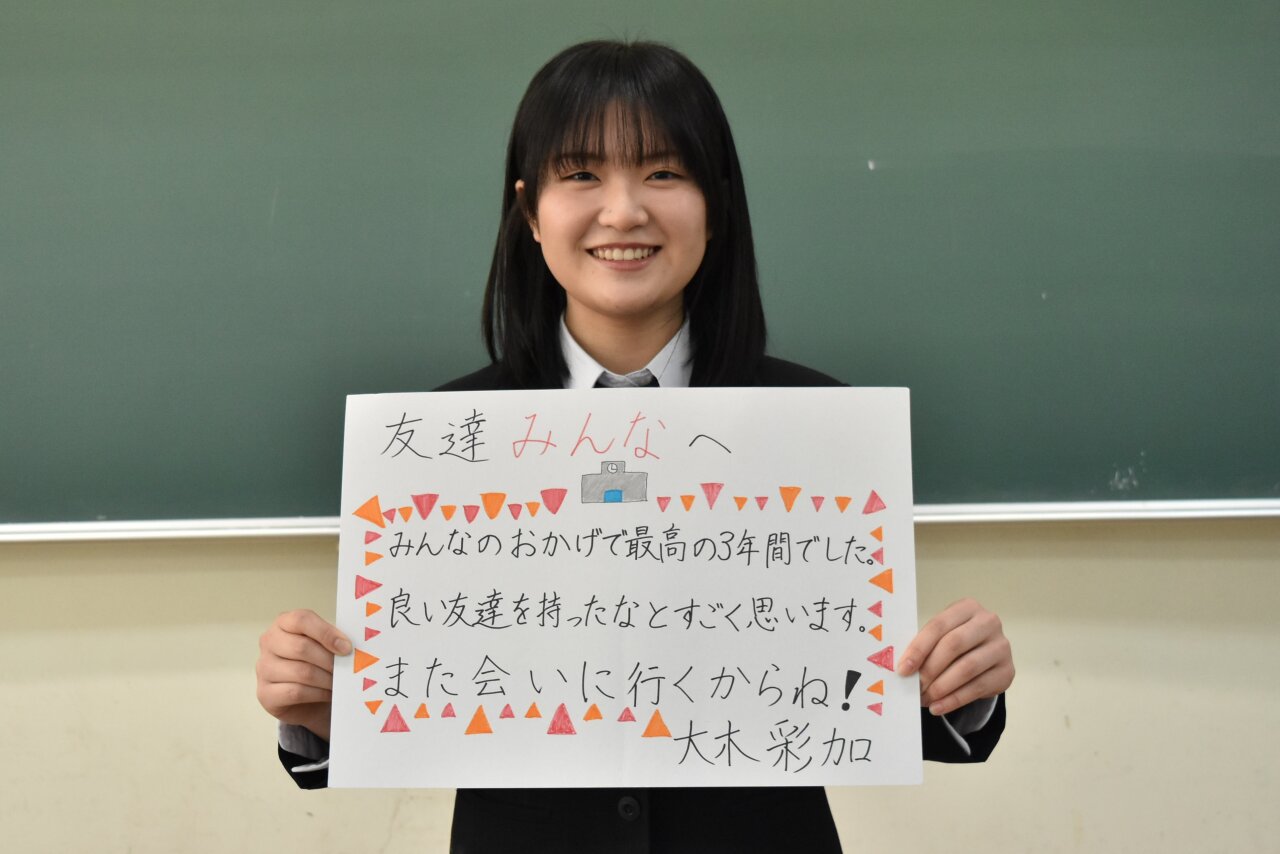 友達みんなへ
みんなのおかげで最高の3年間でした。
良い友達を持ったなとすごく思います。
また会いに行くからね!
大木彩加